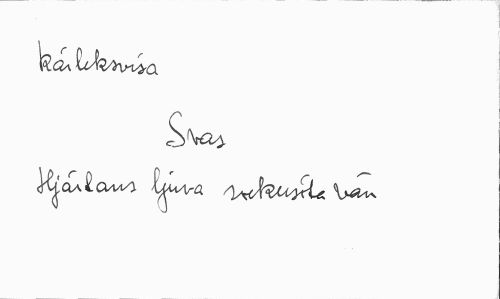 kärleksvisa
Svar
Hjärtans ljuva vän